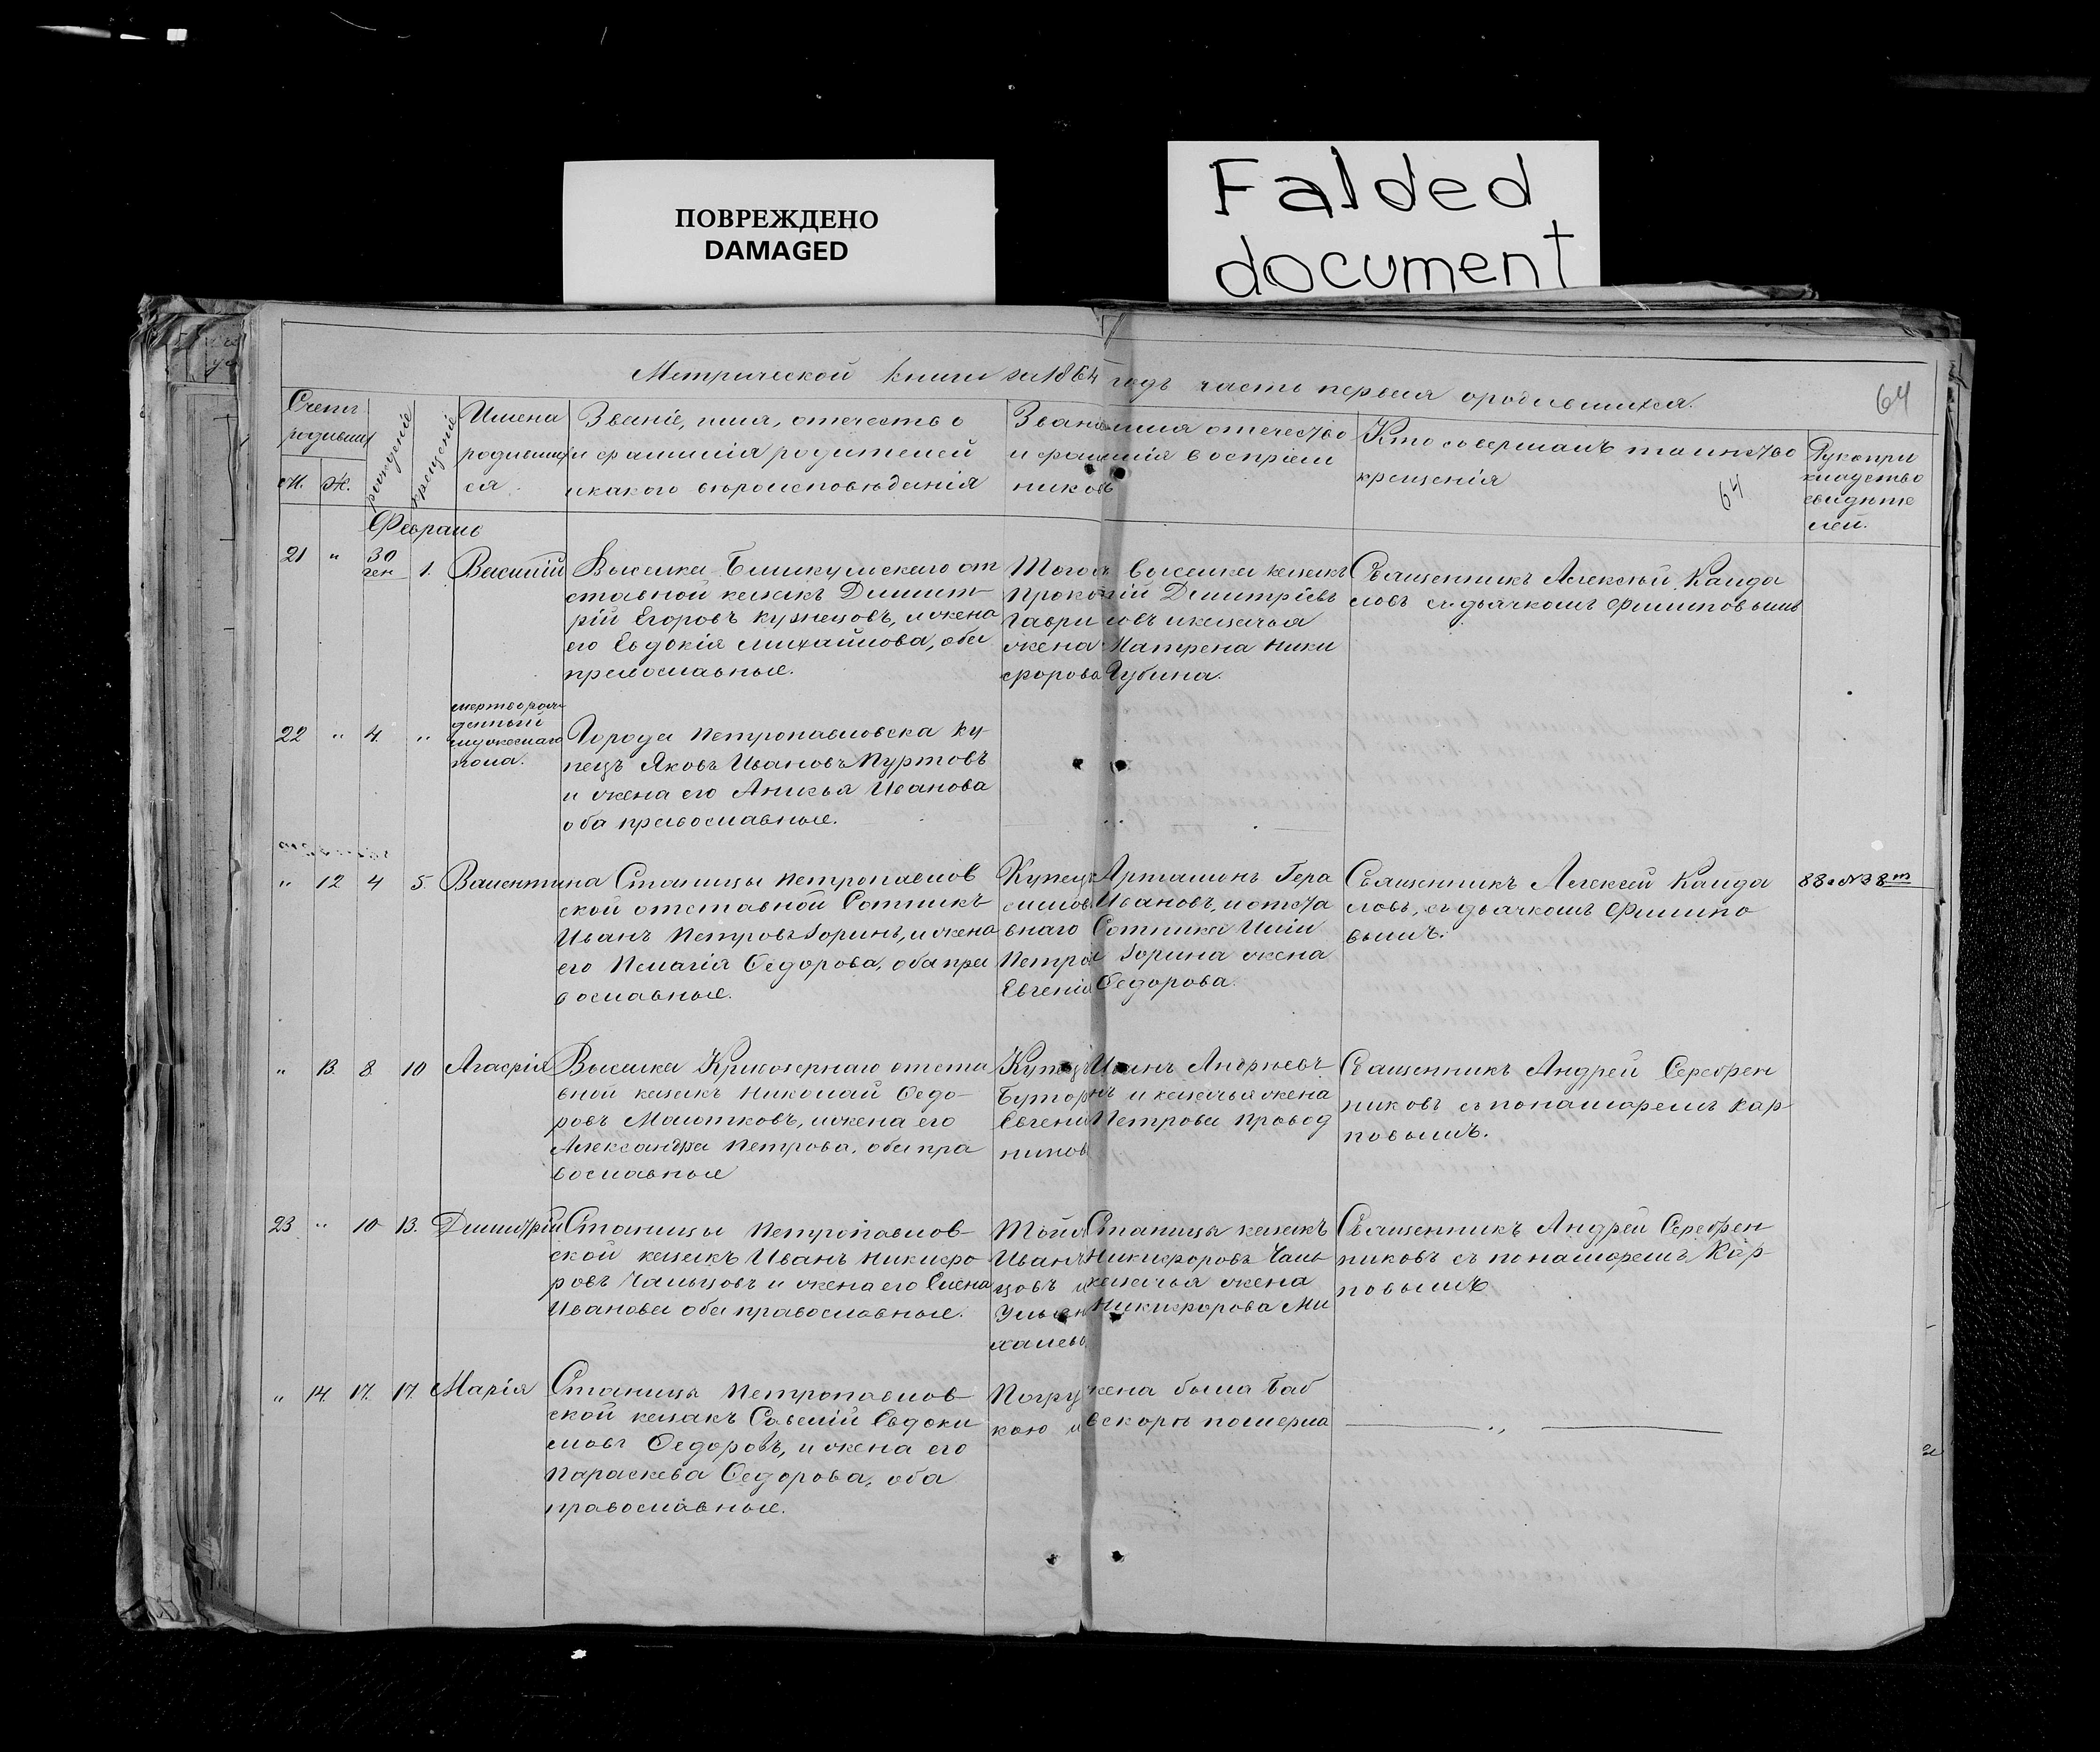 ПОВРЕЖДЕНО
DAMAGED
Falded
document
Метрической книги на 1864 годъ часть первая о родившихся.
64
Счетъ
родивших
М. Ж.
рождение
крещение
Имена
родивших
ся.
Званіе, имя, отечество
и фамилія родителей
и какого вѣроисповѣданія
Званіе имя отечество
и фамилія воспріем
никовъ
Кто совершалъ таинство
крещенія
64
Рукопри
кладство
свидѣте
лей.
Февраль
21 " 30 ген 1. Василій
Выселка Бишкульскаго от
ставной казакъ Димит-
рій Егоровъ Кузнецовъ, и жена
его Евдокія Михайлова, оба
православные.
Того выселка казакъ
Прокопій Димитріевъ
Гавриловъ и казачья
жена Матрена Ники
форова Губина.
Священникъ Алексѣй Кайда
ловъ съ дьячкомъ Филиповымъ
22 " 4. "
мертворож
денный
мужескаго
пола.
Города Петропавловска ку-
пецъ Яковъ Ивановъ Муртовъ
и жена его Анисья Иванова
оба православные.
" 12 4 5. Валентина
Станицы Петропавлов
ской отставной Сотникъ
Иванъ Петровъ Горинъ, и жена
его Пелагія Федорова, оба пра
вославные.
Купецъ Артамонъ Гера
симовъ Ивановъ, и отста
внаго Сотника Ильи
Петрова Горина жена
Евгенія Федорова.
Священникъ Алексей Кайда
ловъ, съ дьячкомъ Филипо
вымъ.
" 13. 8. 10 Агафія
Выселка Кривозернаго отста
вной казакъ Николай Федо-
ровъ Малтковъ, и жена его
Александра Петрова, оба пра
вославные
Купецъ Иванъ Андреевъ
Буторинъ и казачья жена
Евгенія Петрова Провод
никова
Священникъ Андрей Серебрен
никовъ съ понамаремъ Кар-
повымъ.
23 " 10 13. Димитрій
Станицы Петропавлов-
ской казакъ Иванъ Никифо
ровъ Чальцовъ и жена его Елена
Иванова оба православные.
Той Станицы казакъ
Иванъ Никифоровъ Чаль
цовъ и казачья жена
Ульяна Никифорова Ми
халева
Священникъ Андрей Серебрен
никовъ съ понамаремъ Кар-
повымъ
" 14. 17. 17. Марія
Станицы Петропавлов
ской казакъ Савелій Евдоки
мовъ Федоровъ, и жена его
Параскева Федорова, оба
православные.
Погружена была баб
кою и вскорѣ померла